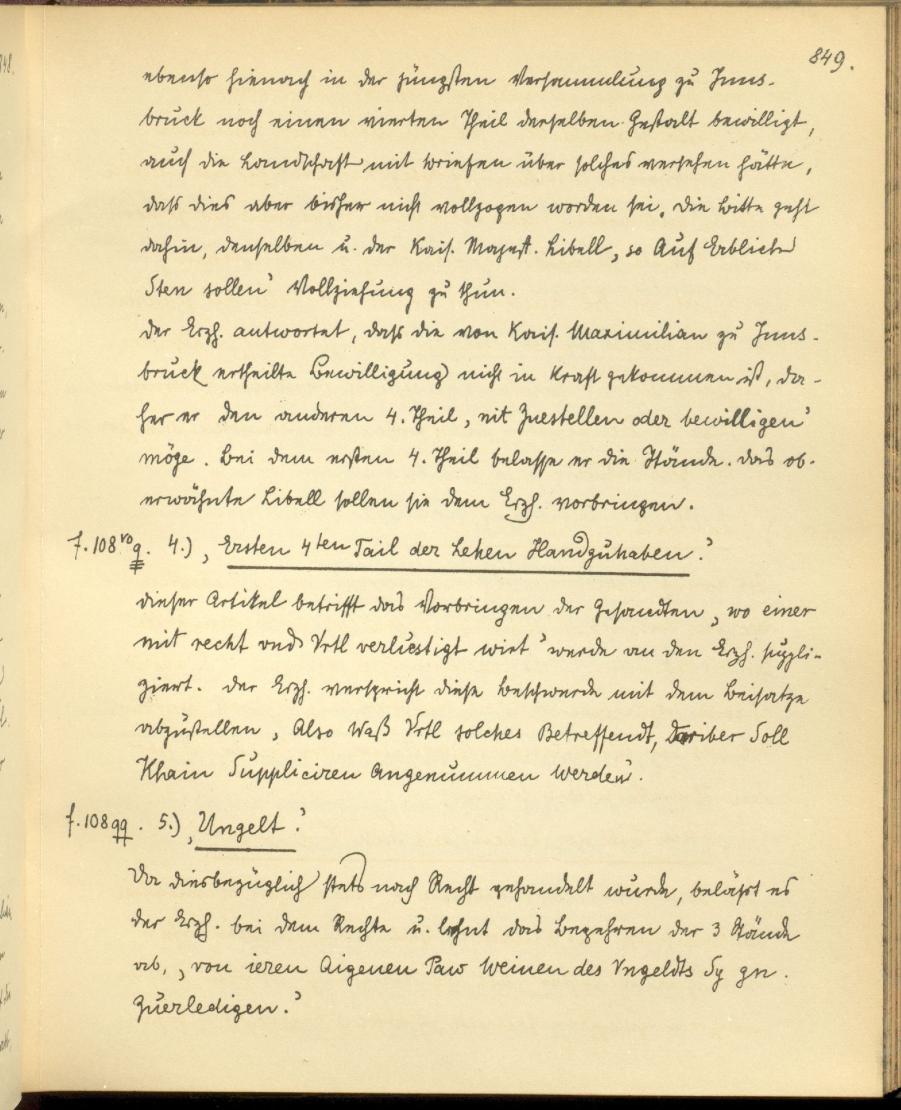 849.
ebenso hienach in der jüngsten Versammlung zu Inns-
bruck noch einen vierten Theil derselben Gestalt bewilligt,
auch die Landschaft mit Briefen über solches versehen hätte,
dass dies aber bisher nicht vollzogen worden sei. Die Bitte geht
dahin, denselben u. der Kais. Majest. Libell, so Auf
Sten sollen' Vollziehung zu thun.
Der Erzh. antwortet, dass die von Kais. Maximilian zu Inns-
bruck ertheilte Bewilligung nicht in Kraft gekommen ist, da-
her er den anderen 4. Theil, nit Zuestellen oder bewilligen'
möge. Bei dem ersten 4. Theil belasse er die Stände. Das ob-
erwähnte Libell sollen sie dem Erzh. vorbringen.
f. 108 vo q. 4.) ‚Ersten 4ten Tail der Lehen Handzuhaben.'
Dieser Artikel betrifft das Vorbringen der Gesandten ‚wo einer
mit recht vnd Vrtl verluestigt wirt' werde an den Erzh. suppli-
ziert. Der Erzh. verspricht diese Beschwerde mit dem Beisatze
abzustellen, ‚Also Waß Vrtl solches Betreffendt, Dariber Soll
Khain Suppliciren Angenummen werden'.
f. 108 qq. 5.) ‚Ungelt.'
Da diesbezüglich stets nach Recht gehandelt wurde, belässt es
der Erzh. bei dem Rechte u. lehnt das Begehren der 3 Stände
ab, ‚von ieren Aigenen Paw Weinen des Vngeldts Sy gn.
Zuerledigen.'